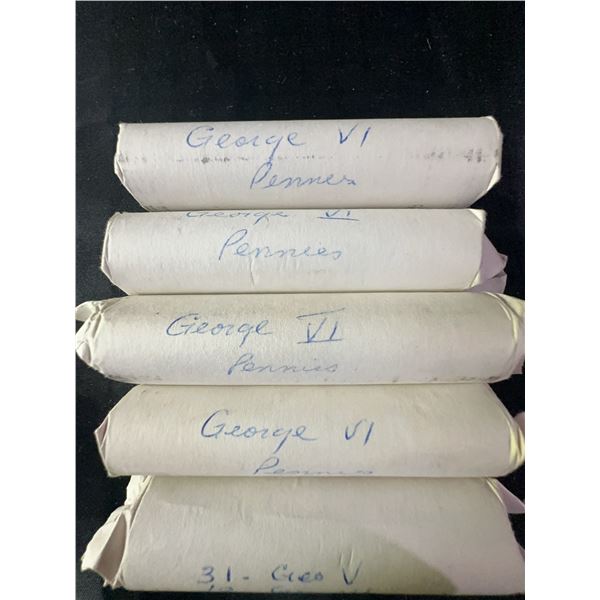 George VI
Pennies
George VI
Pennies
George VI
Pennies
George VI
Pennies
31 - Geo V